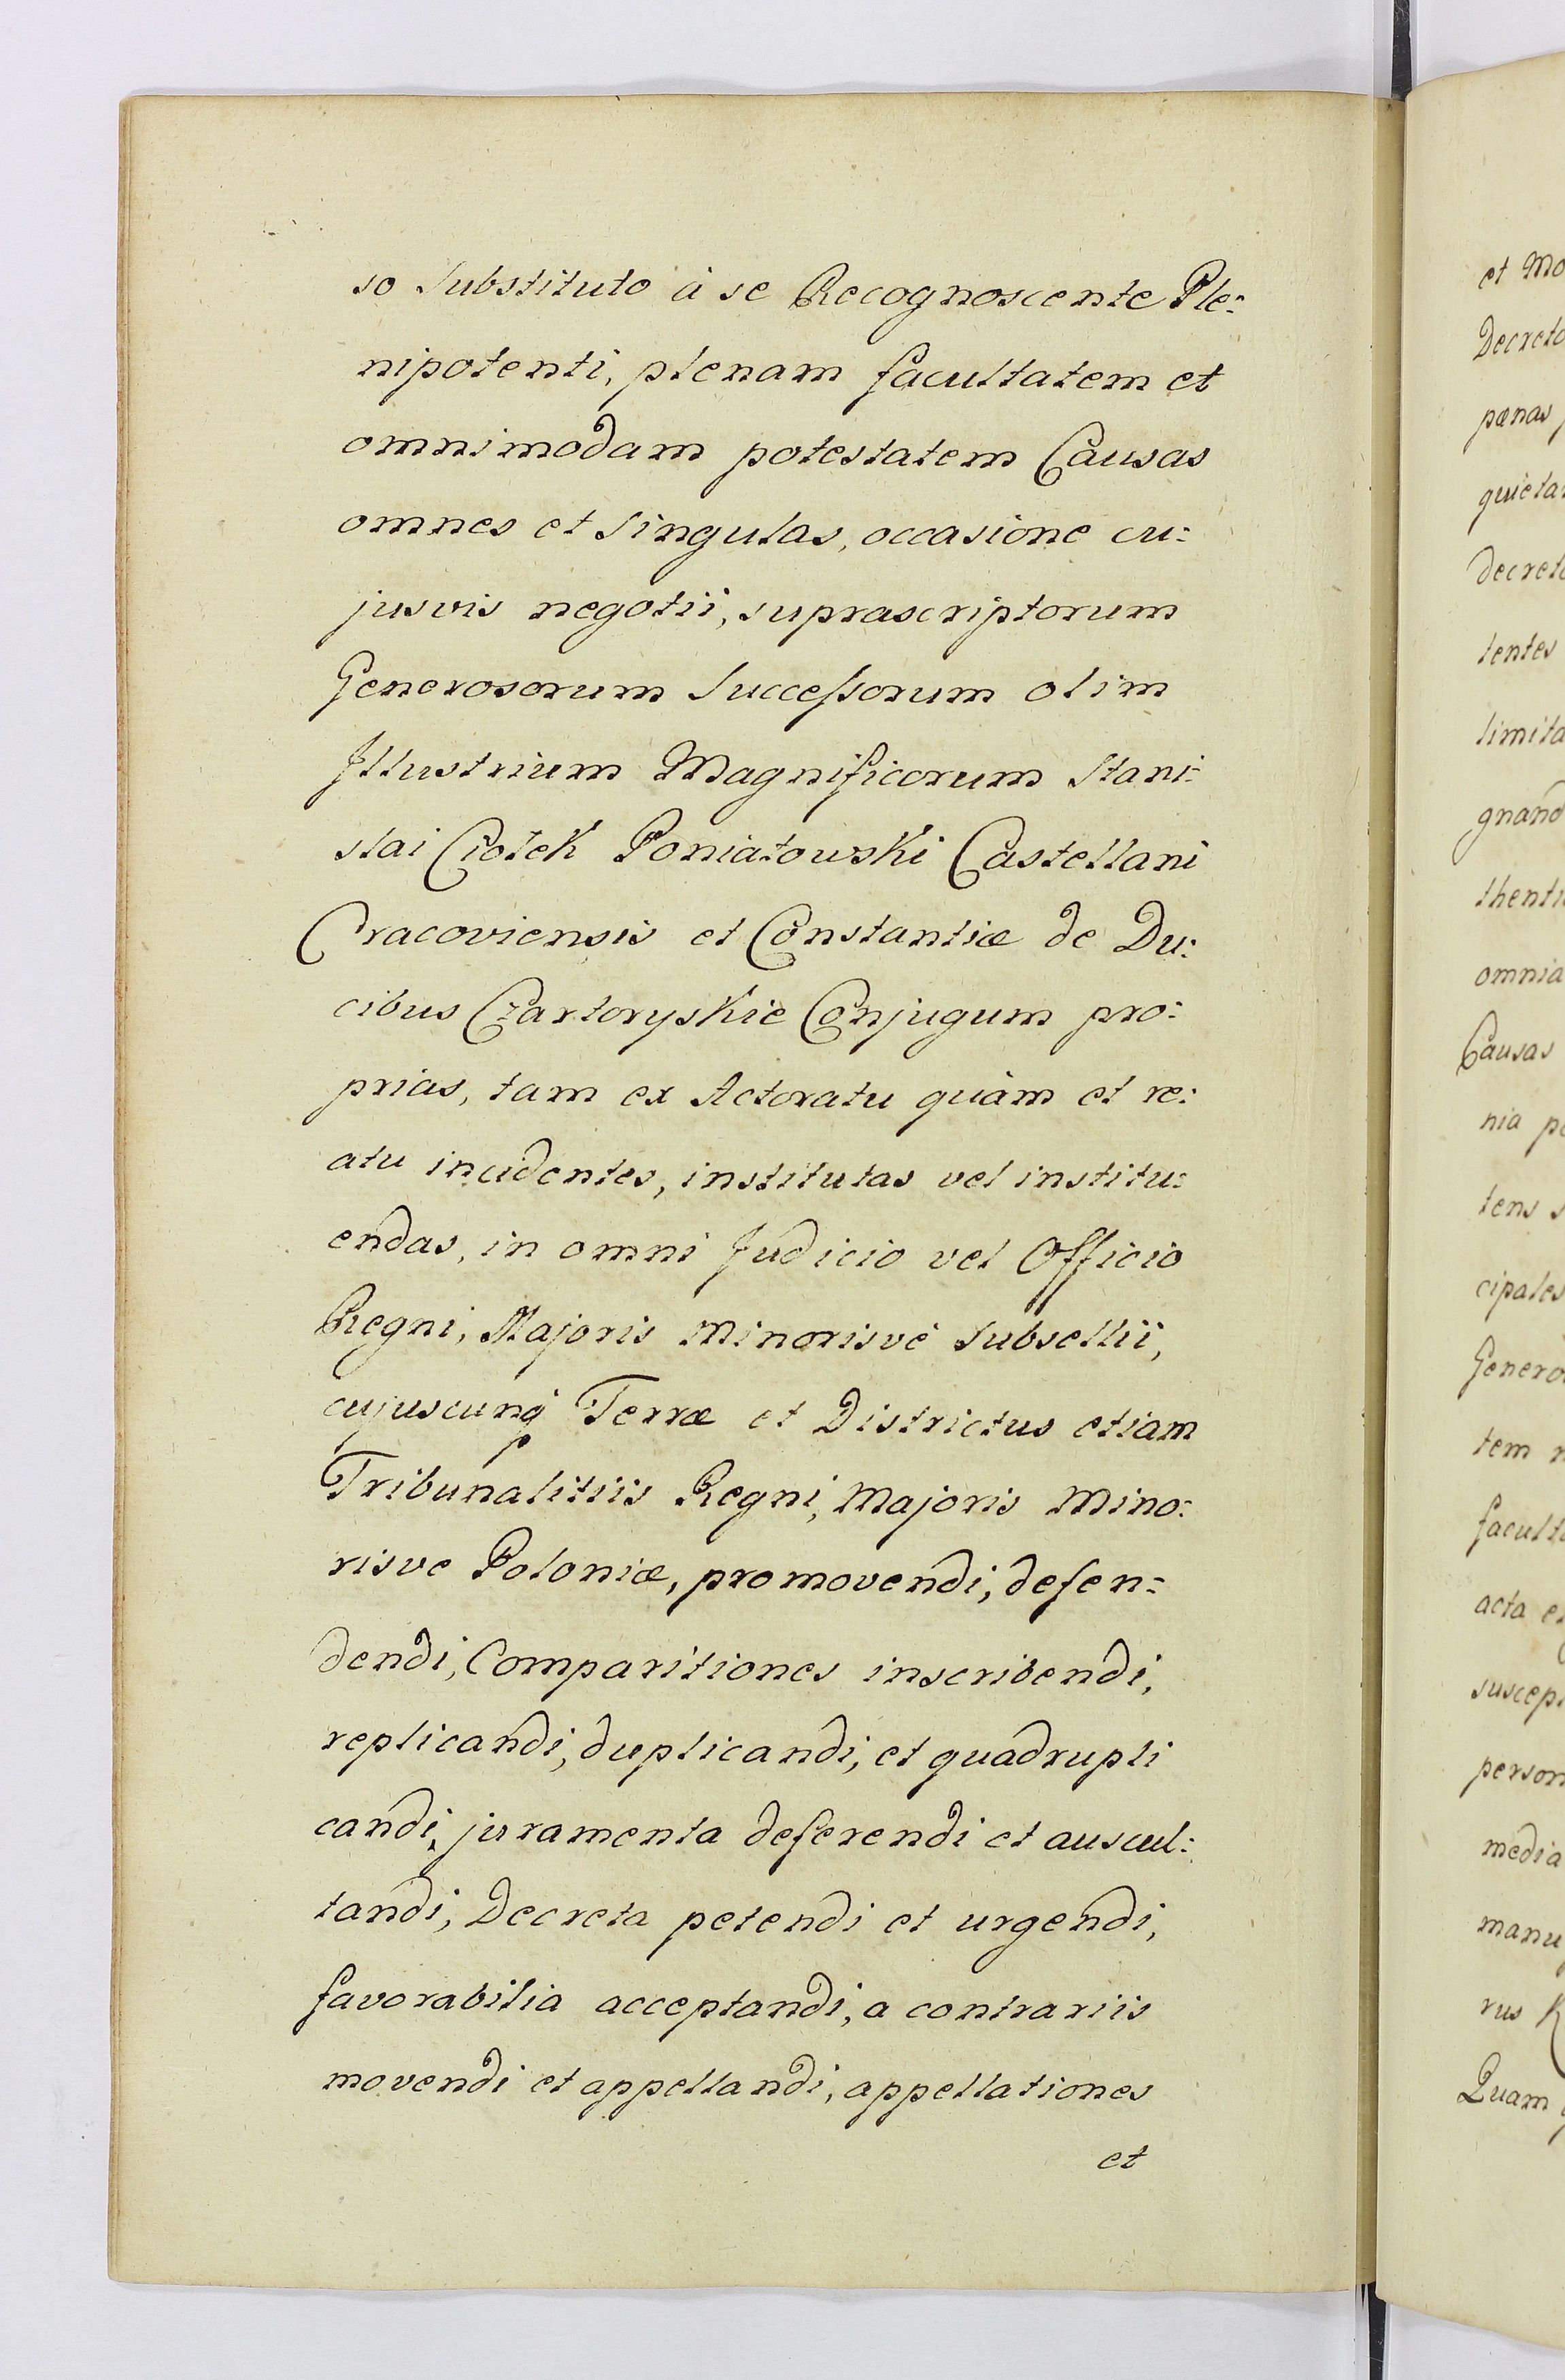 so Substituto à se Recognoscente Ple:
nipotenti, plenam facultatem et
omnimodam potestatem Causas
omnes et Singulas, occasione cu:
jusvis negotii, suprascriptorum
Generosorum Successorum olim
Illustrium Magnificorum Stani:
slai Ciołek Poniatowski Castellani
Cracoviensis et Constantiæ de Du:
cibus Czartoryskie Conjugum pro:
prias, tam ex Actoratu quàm et re:
atu incidentes, institutas vel institu:
endas, in omni Judicio vel Officio
Regni, Majoris Minorisvè Subsellii,
cujuscunq́ Terræ et Districtus etiam
Tribunalitiis Regni, Majoris Mino:
risve Poloniæ, promovendi, defen:
dendi, Comparitiones inscribendi,
replicandi, duplicandi, et quadrupli
candi, juramenta deferendi et auscul:
tandi, Decreta petendi et urgendi,
favorabilia acceptandi, a contrariis
movendi et appellandi, appellationes
et
et Mo
Decreto
pænas
quieta
decreto
tentes
limita
gnand
thenti
omnia
Causas
nia pe
tens s
cipales
Genero
tem n
faculta
acta et
suscept
person
media
manu
rus K
Quam